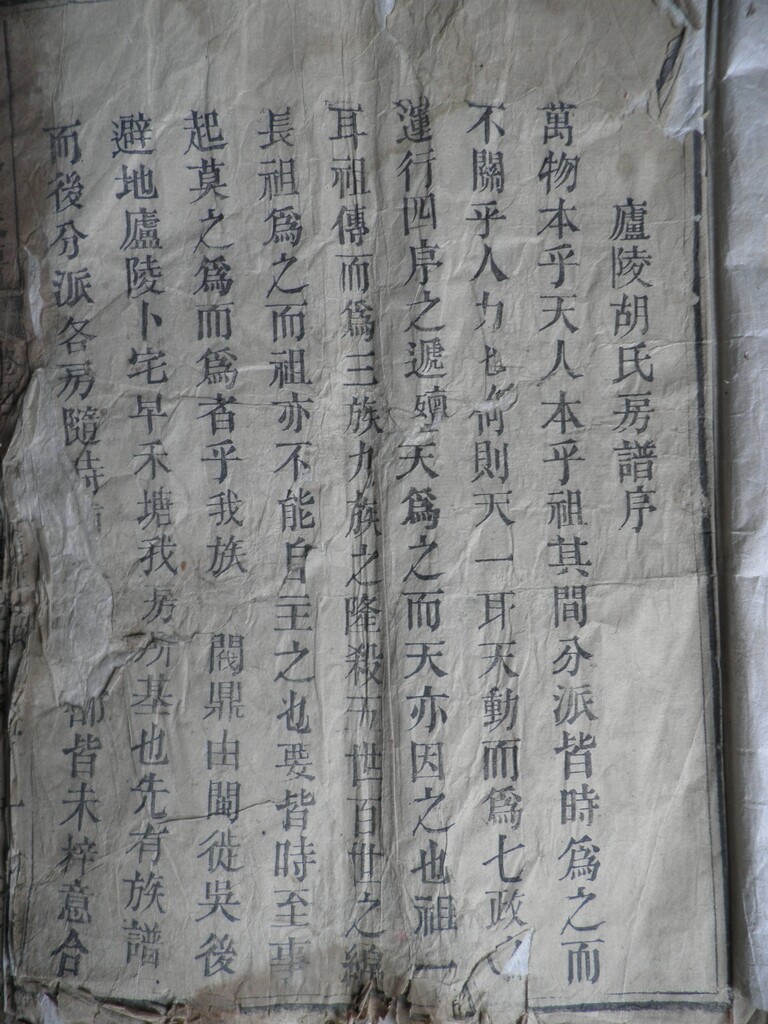 廬陵胡氏房譜序
萬物本乎天人本乎祖其間分派皆時爲之而
不關乎人力也何則天一耳天動而爲七政
運行四序之遞嬗天爲之而天亦因之也祖一
耳祖傳而爲三族九族之隆殺五世百世之綿
長祖爲之而祖亦不能自主之也要皆時至事
起莫之爲而爲者乎我族 閥鼎由閩徙吳後
避地廬陵卜宅早禾塘我房所基也先有族譜
而後分派各房隨 皆未梓意合